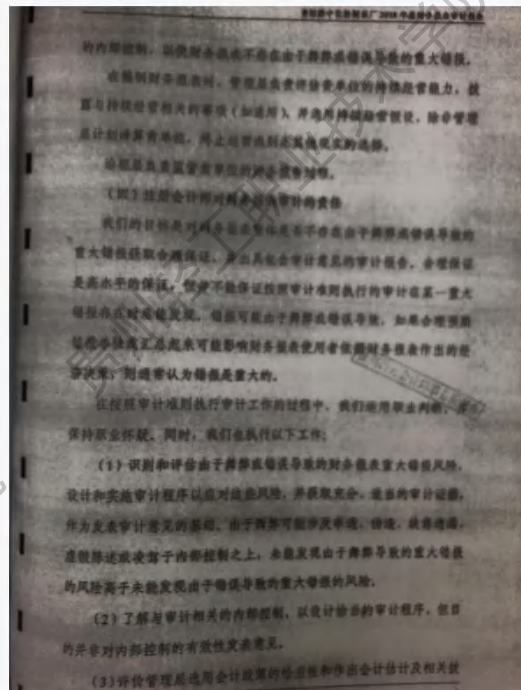 2018年度财务报表审计报告
的内部控制，以使财务报表不存在由于舞弊或错误导致的重大错报。
在编制财务报表时，管理层负责评估贵单位的持续经营能力，披
露与持续经营相关的事项（如适用），并运用持续经营假设，除非管理
层计划清算贵单位、终止运营或别无其他现实的选择。
治理层负责监督贵单位的财务报告过程。
（四）注册会计师对财务报表审计的责任
我们的目标是对财务报表整体是否不存在由于舞弊或错误导致的
重大错报获取合理保证，并出具包含审计意见的审计报告。合理保证
是高水平的保证，但并不能保证按照审计准则执行的审计在某一重大
错报存在时总能发现。错报可能由于舞弊或错误导致，如果合理预期
错报单独或汇总起来可能影响财务报表使用者依据财务报表作出的经
济决策，则通常认为错报是重大的。
在按照审计准则执行审计工作的过程中，我们运用职业判断，并
保持职业怀疑。同时，我们也执行以下工作：
（1）识别和评估由于舞弊或错误导致的财务报表重大错报风险，
设计和实施审计程序以应对这些风险，并获取充分、适当的审计证据，
作为发表审计意见的基础。由于舞弊可能涉及串通、伪造、故意遗漏、
虚假陈述或凌驾于内部控制之上，未能发现由于舞弊导致的重大错报
的风险高于未能发现由于错误导致的重大错报的风险。
（2）了解与审计相关的内部控制，以设计恰当的审计程序，但目
的并非对内部控制的有效性发表意见。
（3）评价管理层选用会计政策的恰当性和作出会计估计及相关披
贵州轻工职业技术学院